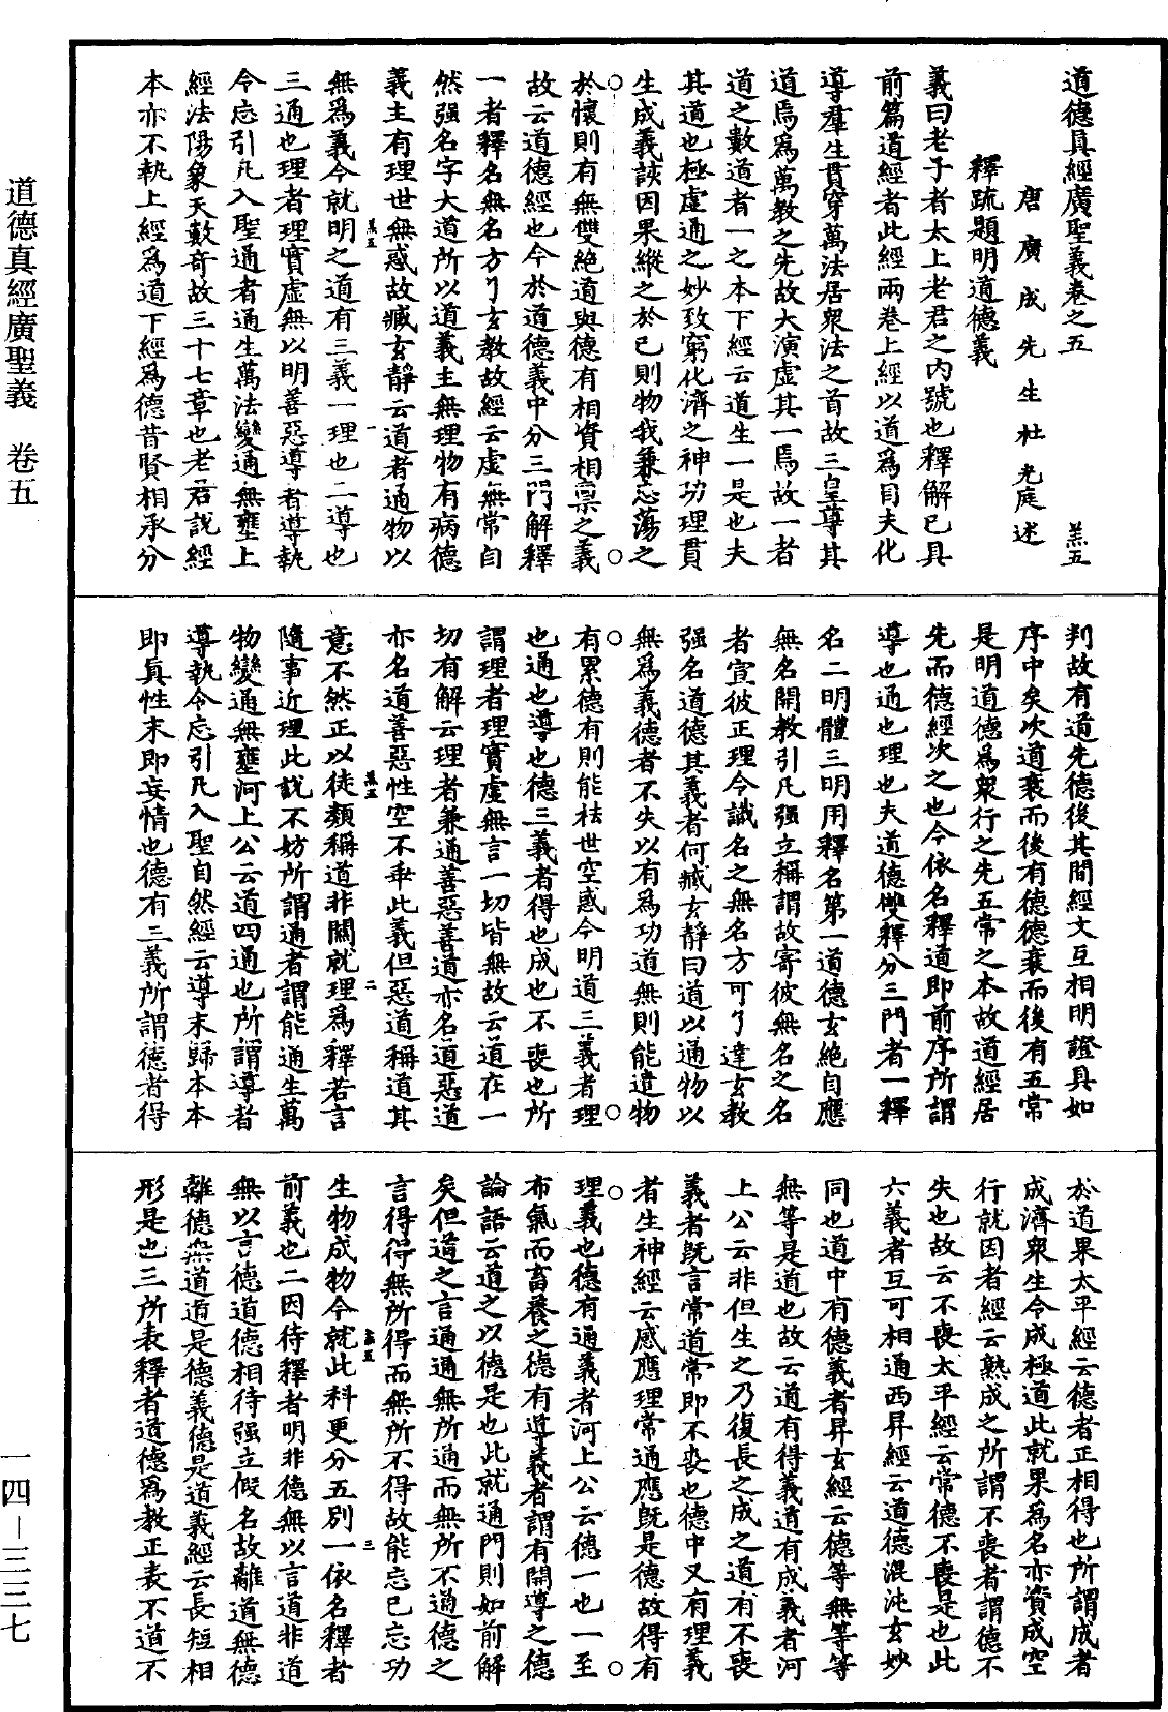 道德真經廣聖義卷之五　羔五
唐廣成先生杜光庭述
釋疏題明道德義
義曰老子者太上老君之內號也釋解已具
前篇道經者此經兩卷上經以道爲目夫化
導羣生貫穿萬法居衆法之首故三皇尊其
道焉爲萬教之先故大演虛其一焉故一者
道之數道者一之本下經云道生一是也夫
其道也極虛通之妙致窮化濟之神功理貫
生成義該因果縱之於已則物我兼忘蕩之
於懷則有無雙絕道與德有相資相稟之義
故云道德經也今於道德義中分三門解釋
一者釋名無名方了玄教故經云虛無常自
然强名字大道所以道義主無理物有病德
義主有理世無惑故臧玄靜云道者通物以
無爲義今就明之道有三義一理也二導也
三通也理者理實虛無以明善惡導者導執
令忘引凡入聖通者通生萬法變通無壅上
經法陽象天數奇故三十七章也老君說經
本亦不執上經爲道下經爲德昔賢相承分
判故有道先德後其間經文互相明證具如
序中矣次道衰而後有德德衰而後有五常
是明道德爲衆行之先五常之本故道經居
先而德經次之也今依名釋道即前序所謂
導也通也理也夫道德雙釋分三門者一釋
名二明體三明用釋名第一道德玄絕自應
無名開教引凡强立稱謂故寄彼無名之名
者宣彼正理令識名之無名方可了達玄教
强名道德其義者何臧玄靜曰道以通物以
無爲義德者不失以有爲功道無則能遣物
有累德有則能祛世空惑今明道三義者理
也通也導也德三義者得也成也不喪也所
謂理者理實虛無言一切皆無故云道在一
切有解云理者兼通善惡善道亦名道惡道
亦名道善惡性空不乖此義但惡道稱道其
意不然正以徒類稱道非關就理爲釋若言
隨事近理此說不妨所謂通者謂能通生萬
物變通無壅河上公云道四通也所謂導者
導執令忘引凡入聖自然經云導末歸本本
即眞性末即妄情也德有三義所謂德者得
於道果太平經云德者正相得也所謂成者
成濟衆生令成極道此就果爲名亦資成空
行就因者經云熟成之所謂不喪者謂德不
失也故云不喪太平經云常德不喪是也此
六義者互可相通西昇經云道德混沌玄妙
同也道中有德義者昇玄經云德等無等等
無等是道也故云道有得義道有成義者河
上公云非但生之乃復長之成之道有不喪
義者旣言常道常即不喪也德中又有理義
者生神經云感應理常通應旣是德故得有
理義也德有通義者河上公云德一也一至
布氣而畜養之德有導義者謂有開導之德
論語云道之以德是也此就通門則如前解
矣但道之言通通無所通而無所不通德之
言得得無所得而無所不得故能忘已忘功
生物成物今就此科更分五別一依名釋者
前義也二因待釋者明非德無以言道非道
無以言德道德相待强立假名故離道無德
離德無道道是德義德是道義經云長短相
形是也三所表釋者道德爲教正表不道不
羔五　一
羔五　二
羔五　三
道德真經廣聖義　卷五
一四－三三七